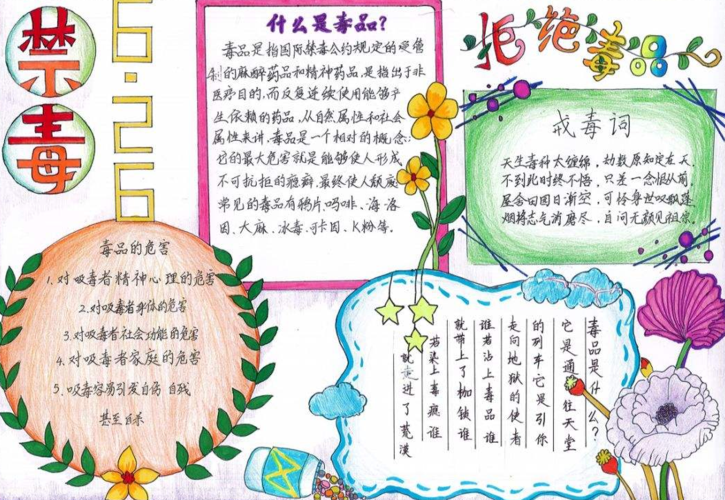 禁毒
6·26
什么是毒品?
毒品是指国际禁毒公约规定的受管
制的麻醉药品和精神药品,是指出于非
医疗目的,而反复连续使用能够产
生依赖的药品。从自然属性和社会
属性来讲,毒品是一个相对的概念:
它的最大危害就是能够使人形成
不可抗拒的瘾癖,最终使人颓废
常见的毒品有鸦片、吗啡、海洛
因、大麻、冰毒、可卡因、K粉等。
拒绝毒品
戒毒词
天生毒种太缠绵,劫数原知定在天,
不到此时终不悟,只差一念恨从前,
屋舍田园日渐空,可怜身世叹飘蓬
烟将志气消磨尽,自问无颜见祖宗。
毒品的危害
1.对吸毒者精神心理的危害
2.对吸毒者身体的危害
3.对吸毒者社会功能的危害
4.对吸毒者家庭的危害
5.吸毒容易引发自伤 自残
甚至自杀
毒品是什么?
它是通往天堂
的列车它是引你
走向地狱的使者
谁若沾上毒品谁
就带上了枷锁谁
若染上毒瘾谁
就走进了荒漠